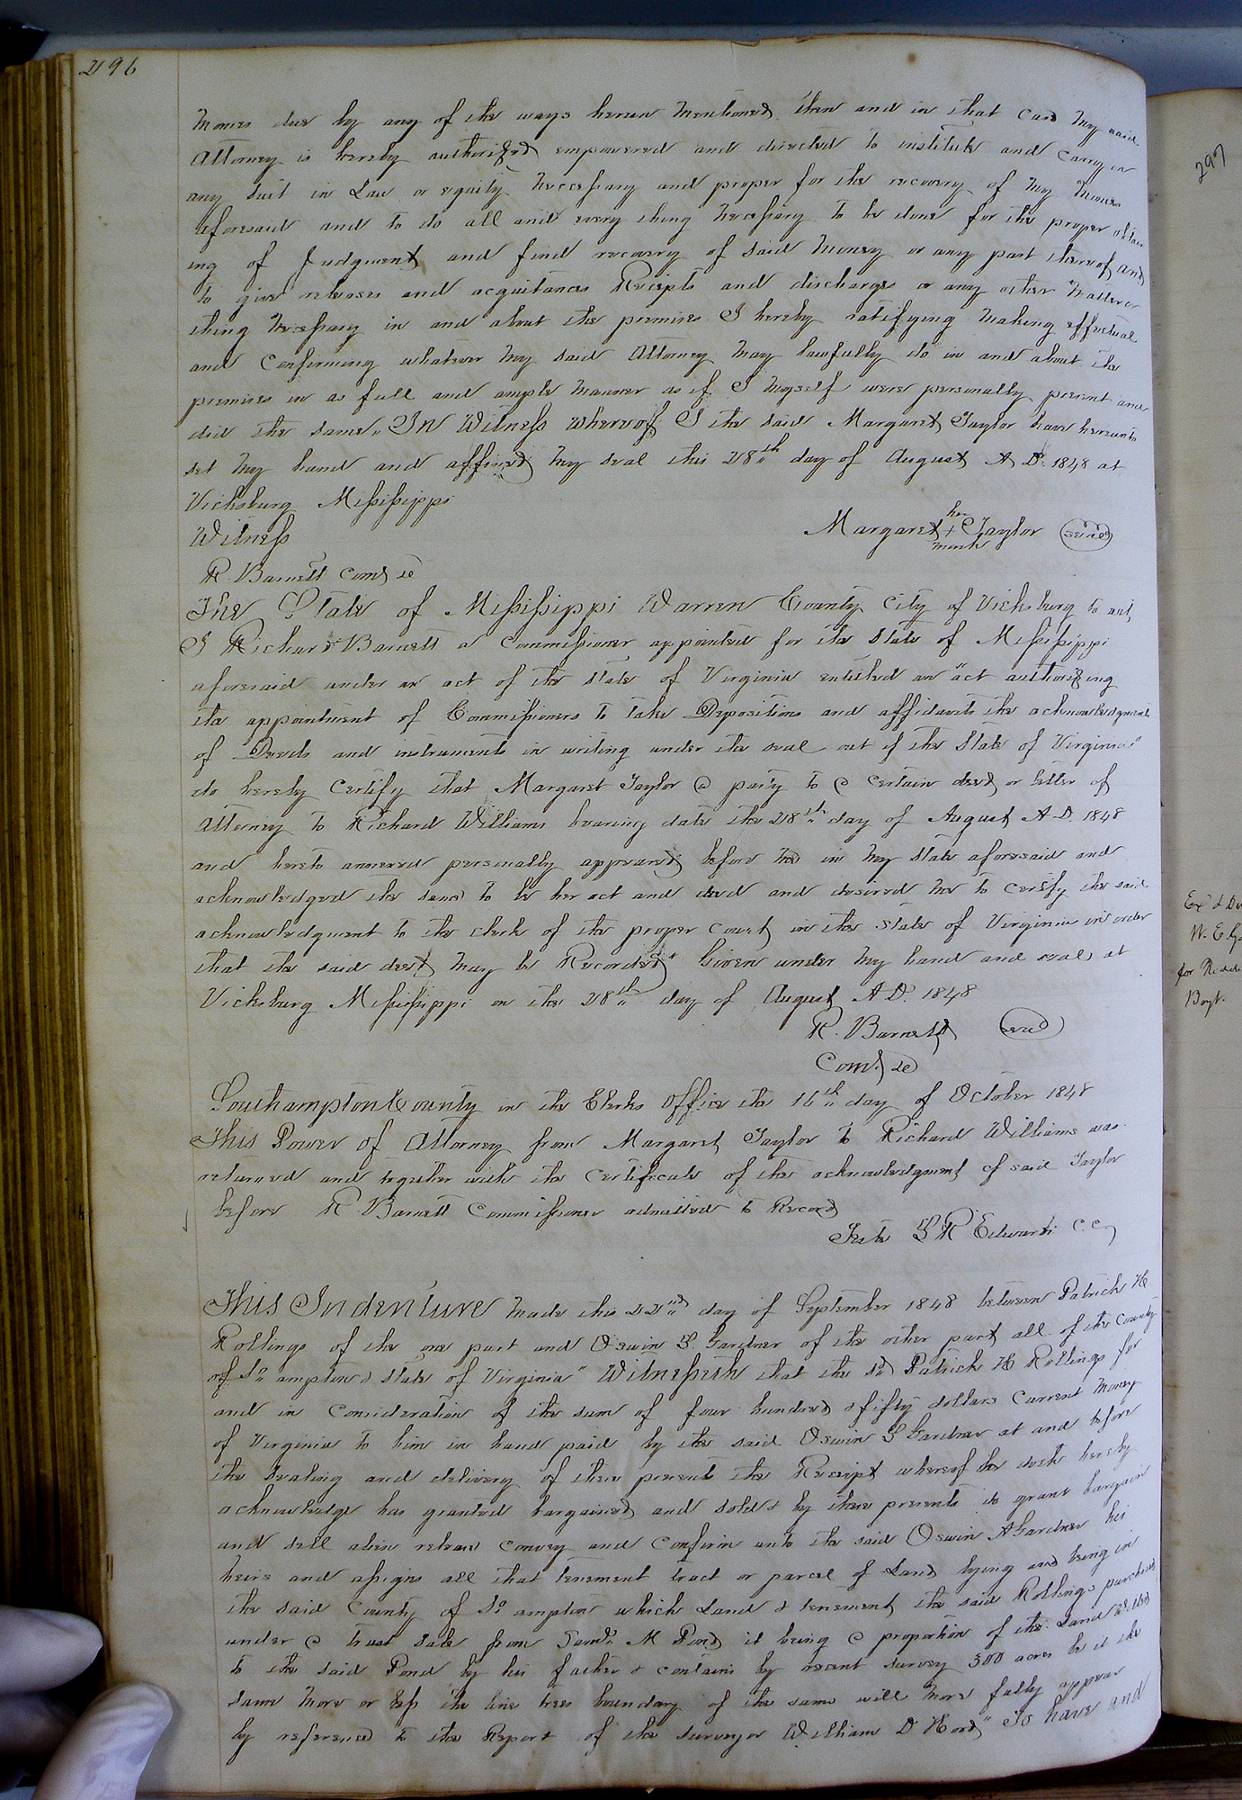 296
monies due by any of the ways herein mentioned then and in that case my said
Attorney is hereby authorized empowered and directed to institute and carry on
any suit in Law or equity necessary and proper for the recovery of my monies
aforesaid and to do all and every thing necessary to be done for the proper obtain
ing of Judgment and find recovery of said money or any part thereof and
to give releases and acquitances Receipts and discharge or any other matter or
thing necessary in and about the premises I hereby ratifying making effectual
and confirming whatever my said Attorney may lawfully do in and about the
premises in as full and ample manner as if I myself were personally present and
did the same. In Witness whereof I the said Margaret Taylor have hereunto
set my hand and affixed my seal this 28th day of August A D. 1848 at
Vicksburg Mississippi
Witness
Margaret her + mark Taylor seal
R. Barnett Com &c
The State of Mississippi Warren County City of Vicksburg to wit,
I Richard Barnett a Commissioner appointed for the State of Mississippi
aforesaid under an act of the State of Virginia entitled an "act authorizing
the appointment of Commissioners to take Depositions and affidavits the acknowledgment
of Deeds and instruments in writing under the seal out of the State of Virginia"
do hereby Certify that Margaret Taylor a party to a certain deed or letter of
Attorney to Richard Williams bearing date the 28th day of August A.D. 1848
and hereto annexed personally appeared before me in my State aforesaid and
acknowledged the same to be her act and deed and desired me to certify the said
acknowledgment to the clerk of the proper court in the State of Virginia in order
that the said deed may be Recorded" Given under my hand and seal at
Vicksburg Mississippi on the 28th day of August A.D. 1848
R. Barnett seal
Com &c
Southampton County in the Clerks office the 16th day of October 1848
This Power of Attorney from Margaret Taylor to Richard Williams was
returned and together with the Certificate of the acknowledgment of said Taylor
before R Barnett Commissioner admitted to Record
Teste L R Edwards C.C.
This Indenture made this 22nd day of September 1848 between Patrick H
Rollings of the one part and Oswin S Gardner of the other part all of the County
of So ampton & State of Virginia" Witnesseth that the sd Patrick H Rollings for
and in Consideration of the sum of four hundred & fifty dollars Current money
of Virginia to him in hand paid by the said Oswin S Gardner at and before
the sealing and delivery of these presents the Receipt whereof he doth hereby
acknowledge has granted bargained and sold & by these presents do grant bargain
and sell alien release convey and confirm unto the said Oswin Gardner his
heirs and assigns all that tenement tract or parcel of Land lying and being in
the said County of So ampton which Land & tenement the said Rollings purchased
under a trust sale from Saml. M Pond it being a proportion of the Land willed
to the said Pond by his father & contains by recent survey 300 acres be it the
same more or less the line trees boundary of the same will more fully appear
by reference to the Report of the surveyor William D Hood" To have and
297
W. E. G
for